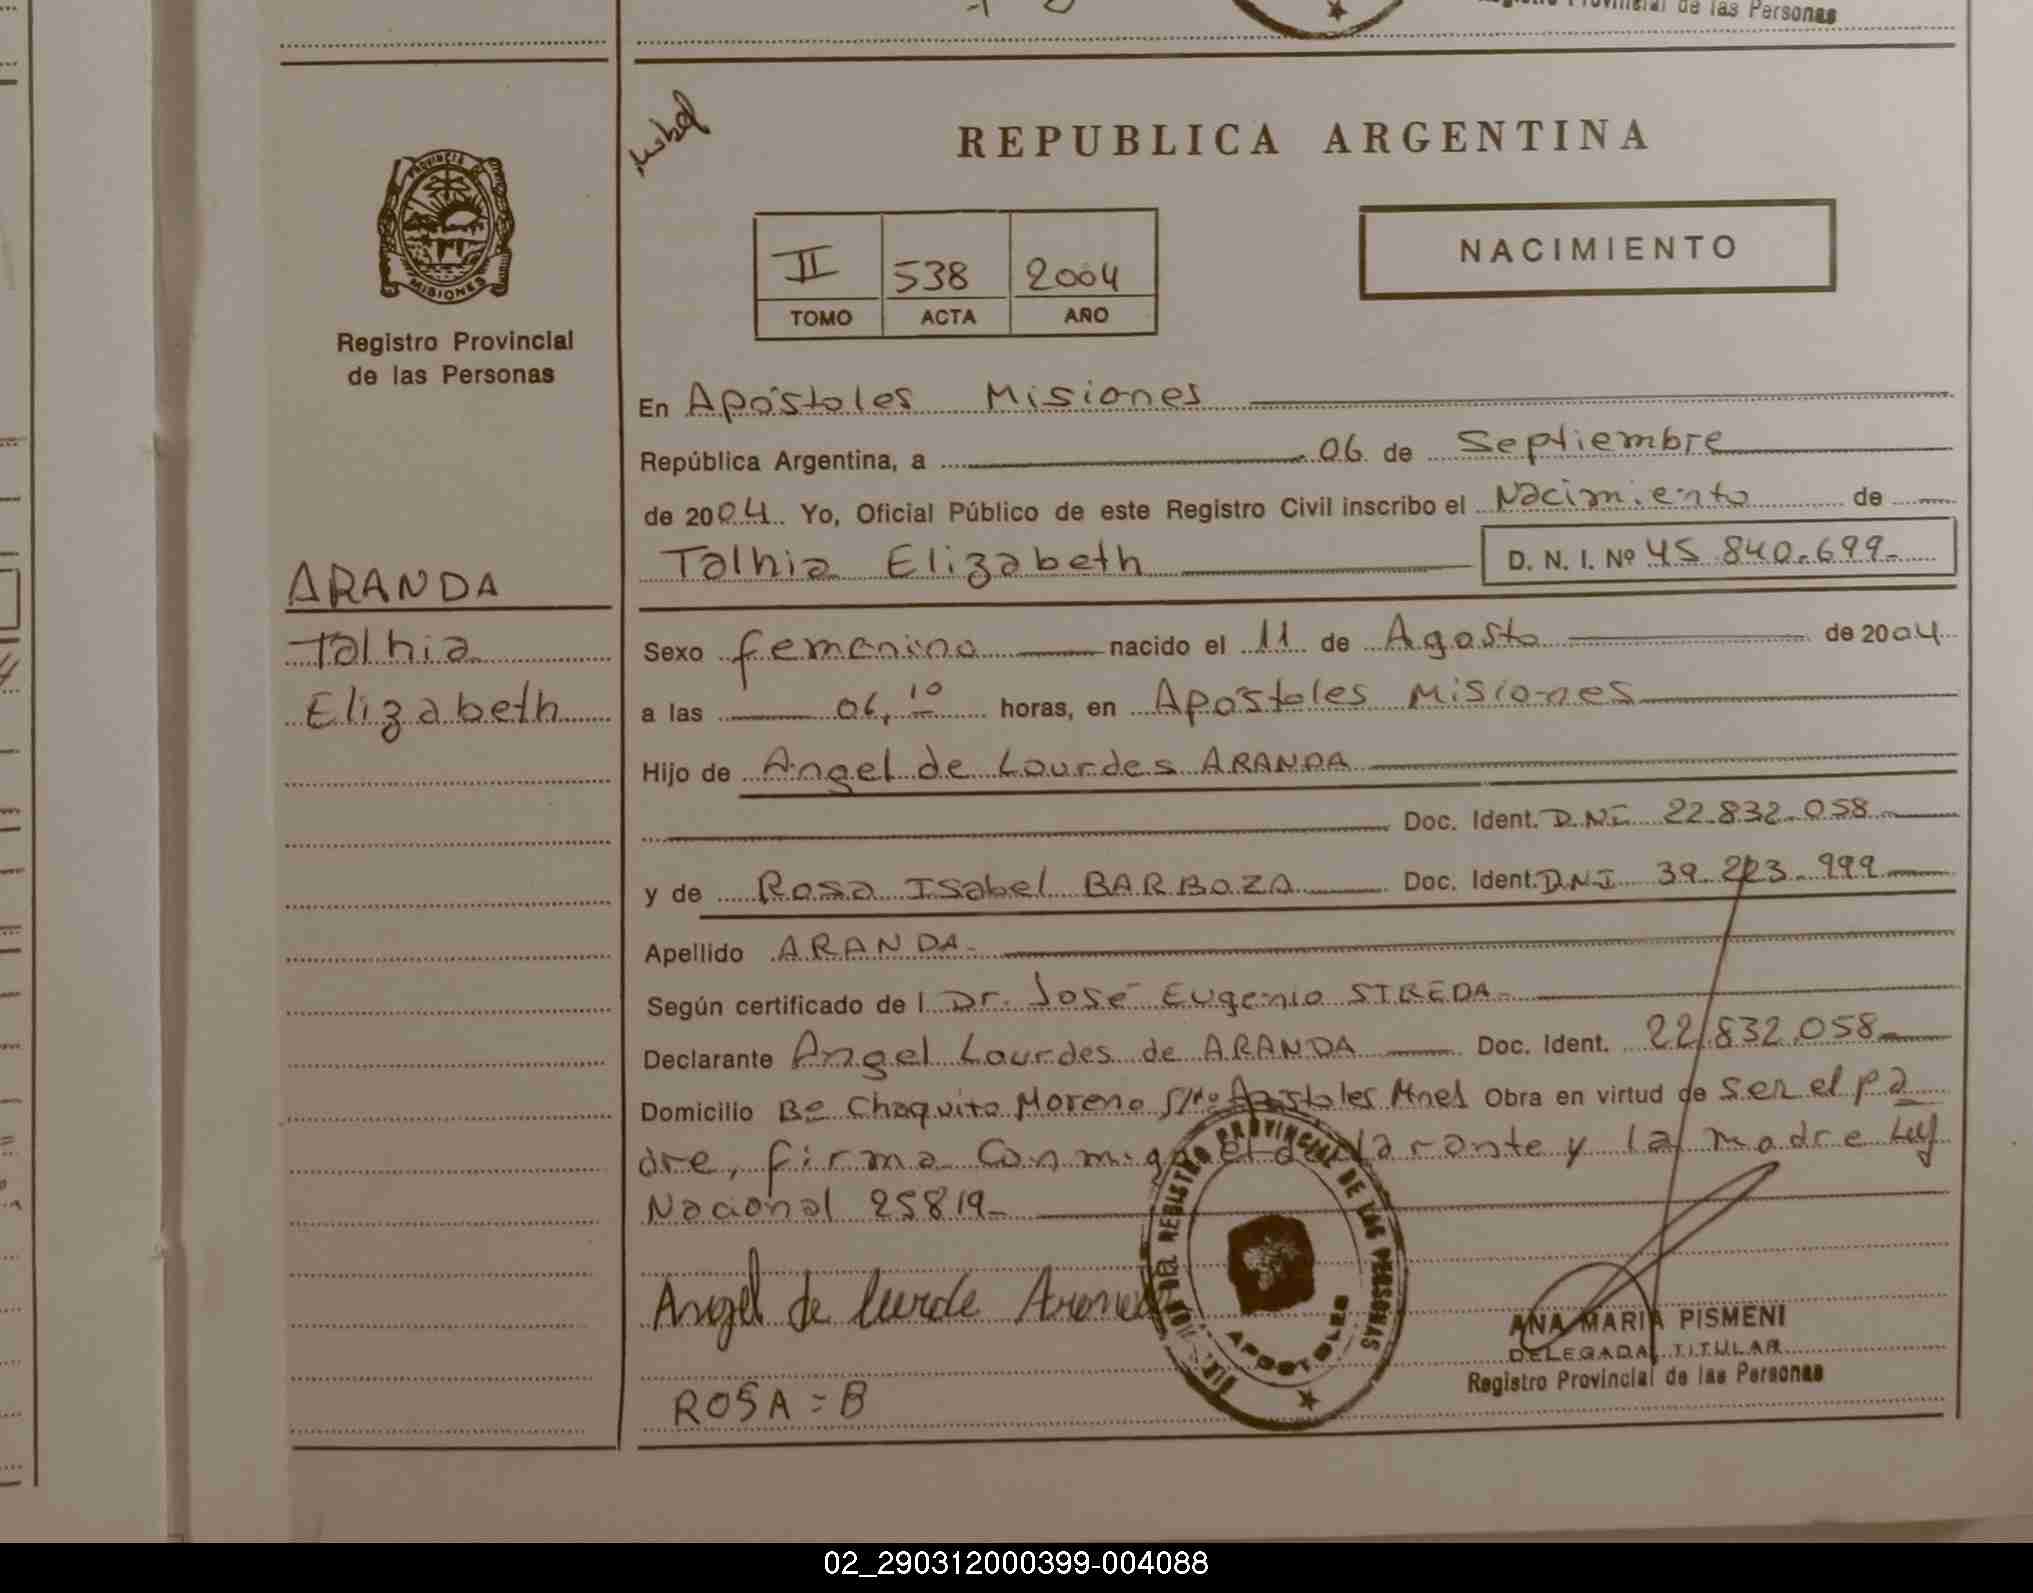 Registro Provincial de las Personas
PROVINCIA DE
MISIONES
Registro Provincial
de las Personas
ARANDA
Talhia
Elizabeth
REPUBLICA ARGENTINA
II 538 2004
TOMO ACTA AÑO
NACIMIENTO
En Apóstoles Misiones
República Argentina, a 06 de Septiembre
de 2004 Yo, Oficial Público de este Registro Civil inscribo el Nacimiento de
Talhia Elizabeth D. N. I. Nº 45.840.699-
Sexo femenino nacido el 11 de Agosto de 2004
a las 06,10 horas, en Apóstoles Misiones
Hijo de Angel de Lourdes ARANDA
Doc. Ident. DNI 22.832.058
y de Rosa Isabel BARBOZA Doc. Ident. DNI 39.223.999
Apellido ARANDA-
Según certificado de l Dr. José Eugenio STREDA-
Declarante Angel Lourdes de ARANDA Doc. Ident. 22.832.058
Domicilio Bº Chaquito Moreno S/Nº Apóstoles Mnes Obra en virtud de ser el pa
dre, firma conmigo el declarante y la madre Ley
Nacional 25819-
Angel de
ROSA = B
DEL REGISTRO PROVINCIAL DE LAS PERSONAS
APOSTOLES
ANA MARIA PISMENI
DELEGADA TITULAR
Registro Provincial de las Personas
02_290312000399-004088